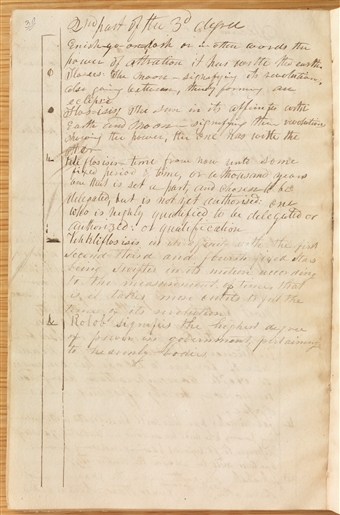 30
2nd part of the 3d degree
Enish-go-on-dosh or in other words the
power of attration it has with the earth.
the moon — signifying its revolution,
also going between, thereby forming an
eclipce
The sun in its affinity with
Earth and Moon — signifying their revolution
showing the power, the one has with the
other
time from now until some
fixed period of time, or a thousand years
one that is set apart, and chosen to be
delegated, but is not yet authorised: one
who is highly qualified to be delegated or
authorized: or qualification
in its affinity with the first
second third and fourth fixed stars
being swifter in its motion according
to the measurement of times that
is, it takes more orbits to get the
time of its revolution
Kolob signifies the highest degree
of power in government, pertaining
to heavenly bodies